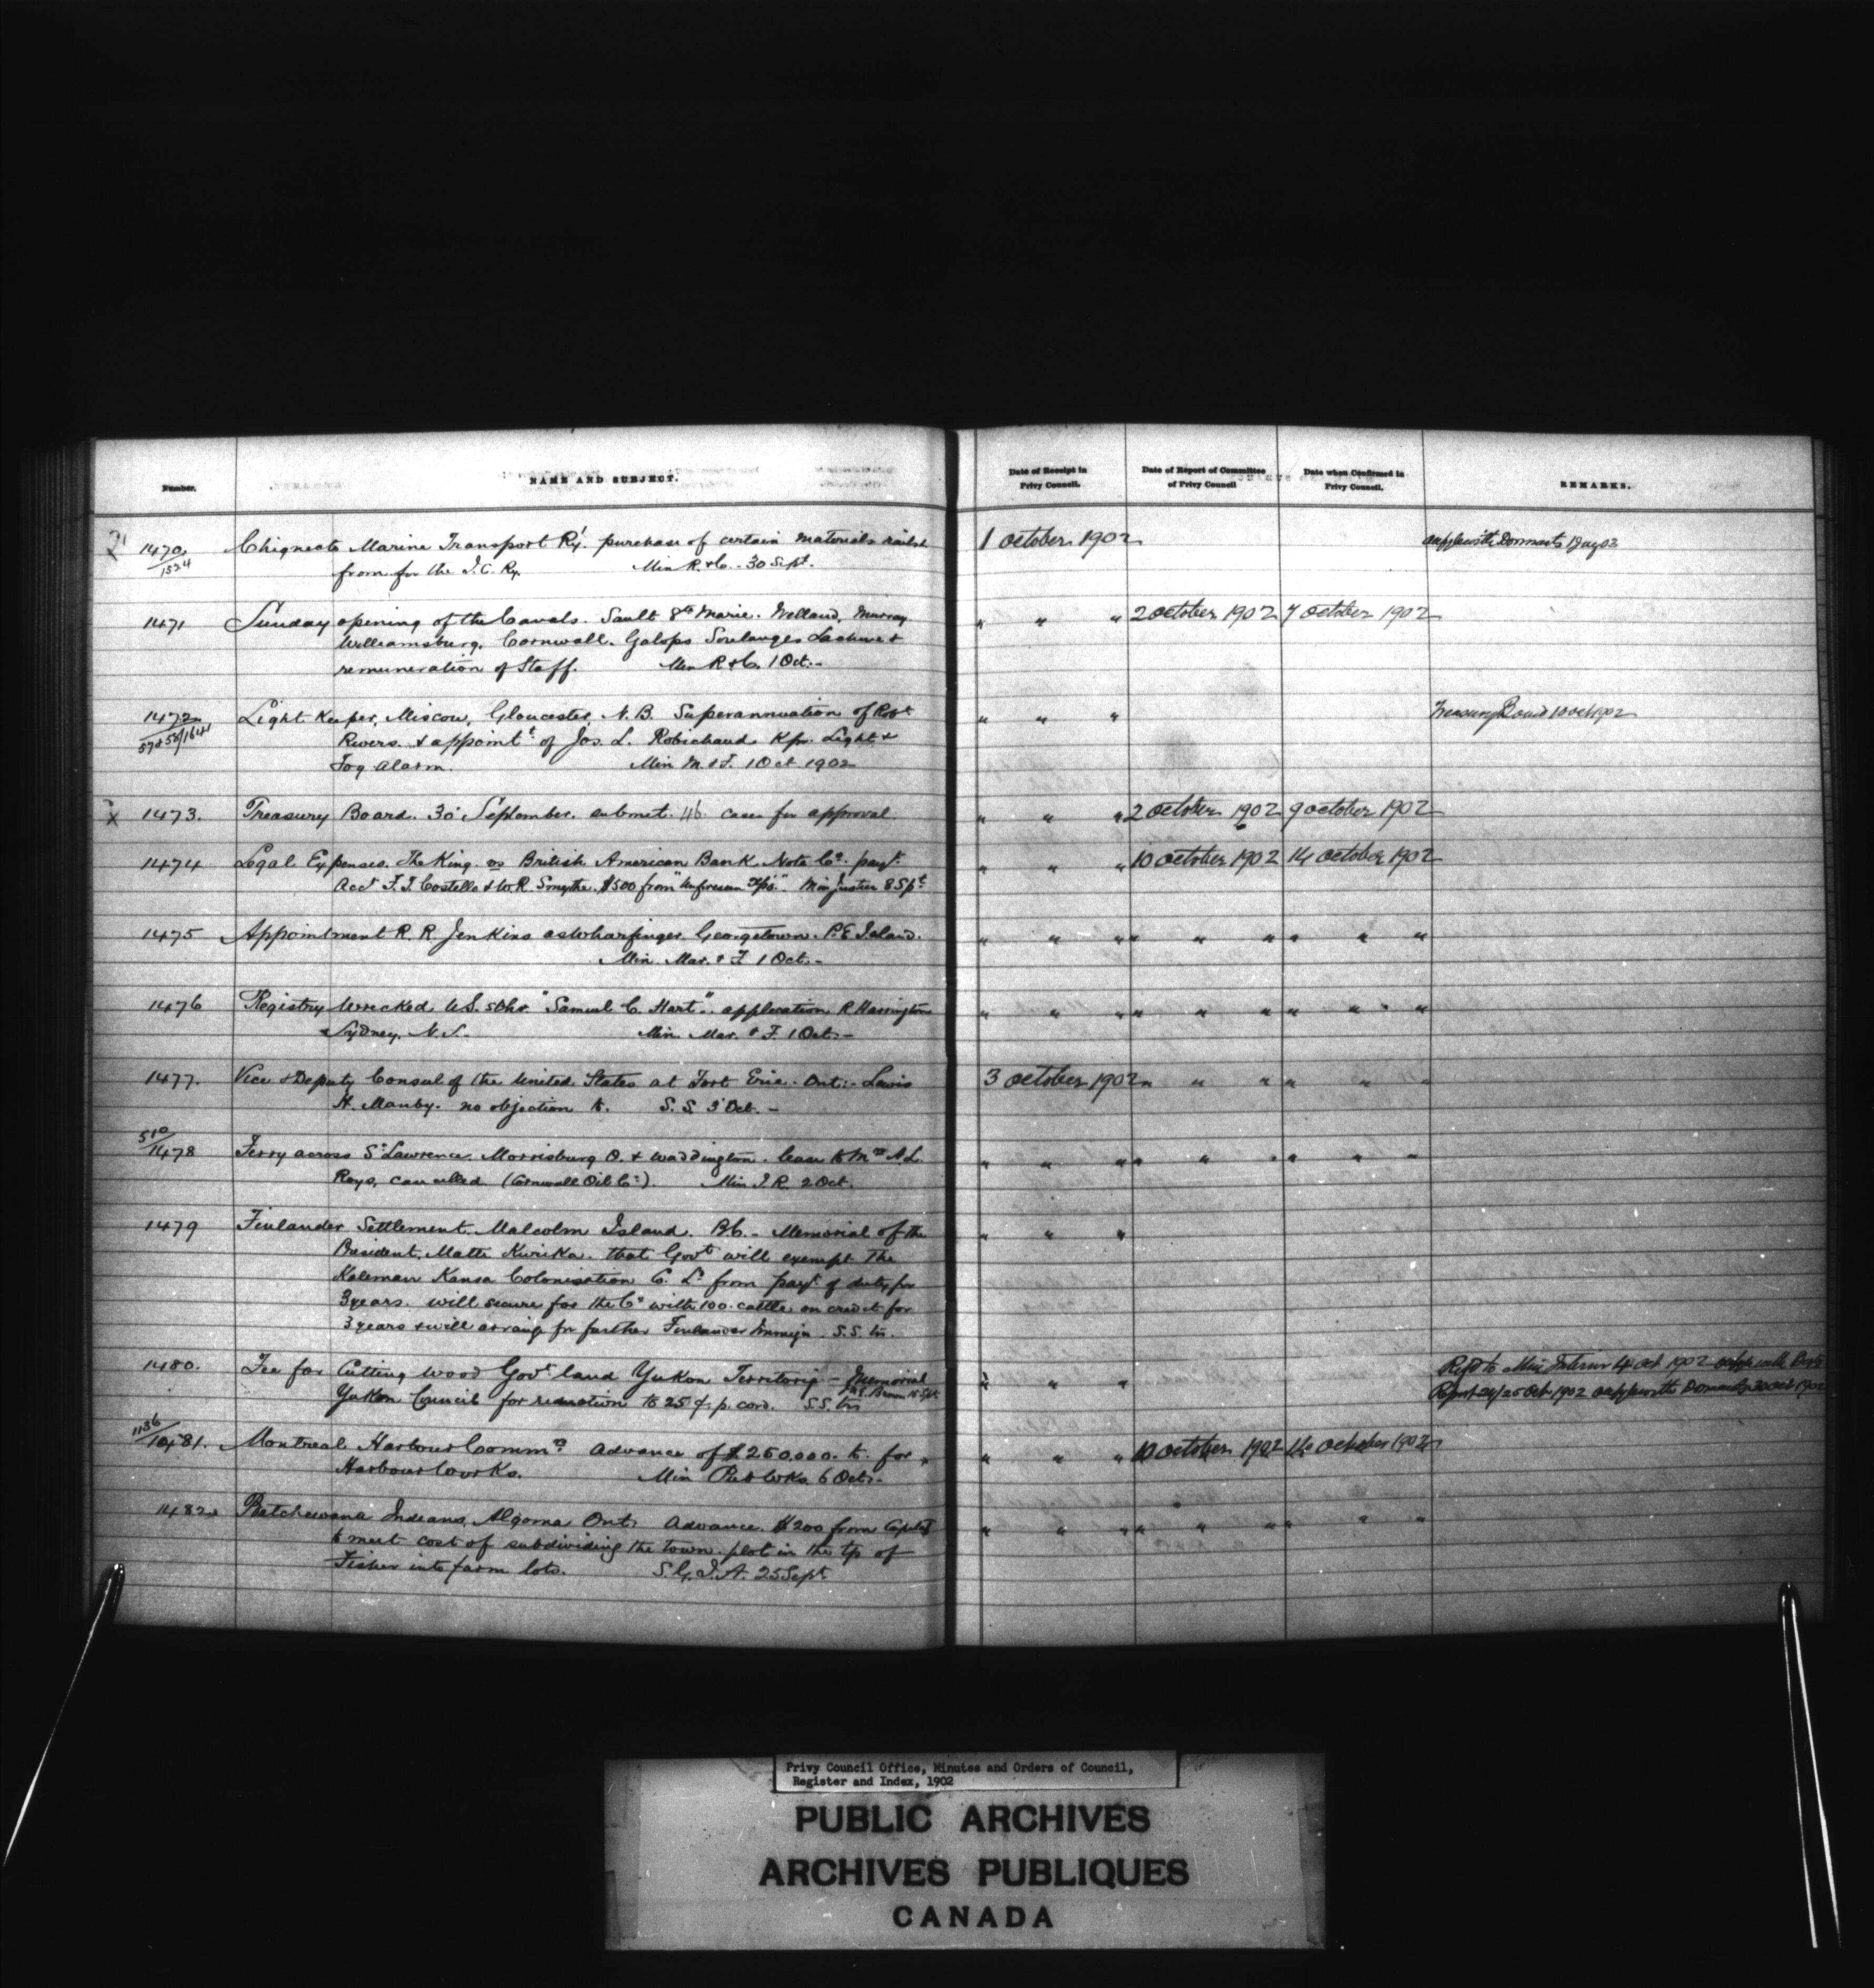 Number.
NAME AND SUBJECT.
Date of Receipt in
Privy Council.
Date of Report of Committee
of Privy Council
Date when Confirmed in
Privy Council.
REMARKS.
1470 Chignecto Marine Transport Ry. purchase of certain materials rails &
1524
from for the I.C. Ry. Min R. & C. - 30 Sept.
1 October 1902
1471 Sunday opening of the Canals. Sault Ste Marie. Welland, Murray
Williamsburg. Cornwall. Galops Soulanges Lachine &
remuneration of Staff. Min R & C. 1 Oct. -
" " " 2 October 1902 7 October 1902
1472 Light Keeper, Miscou, Gloucester, N.B. Superannuation of Robt
Rivers. & appointt of Jos. L. Robichaud Kpr. Light &
Fog Alarm. Min M. & F. 1 Oct 1902
" " " Treasury Board 10 Oct 1902
1473. Treasury Board. 30 September. submit. 46. cases for approval.
" " " 2 October 1902 9 October 1902
1474 Legal Expenses. The King vs British American Bank Note Co. payt.
Acct F. J. Costello & W. R. Smythe. $500 from "Unforeseen Exps." Min Justice 8 Spt
" " " 10 October 1902 14 October 1902
1475 Appointment R. R Jenkins as Wharfinger. Georgetown. P.E. Island.
Min. Mar. & F 1 Oct. -
" " " " " " " " "
1476 Registry Wrecked U.S. Schr. "Samuel C. Hart". application R Harrington
Sydney. N.S. - Min. Mar. & F. 1 Oct. -
" " " " " " " " "
1477. Vice & Deputy Consul of the United States at Fort Erie. Ont: - Lewis
H. Manby. no objection to. S. S. 3 Oct. -
3 October 1902 " " " " " "
510
1478 Ferry across St Lawrence. Morrisburg O. & Waddington. lease to
Roys, cancelled (Cornwall Oil Co:). Min I. R. 2 Oct.
" " " " " " " " "
1479 Finlander Settlement. Malcolm Island. B.C. - Memorial of the
President, Matti that Govt will exempt the
Colonisation C. Ld from payt. of duty for
3 years. will secure for the Co with 100. cattle on credit for
3 years & will arrange for further Finlander Immign. S.S. trs.
" " "
1480. Fee for Cutting wood Govt land Yukon Territory - Memorial
Yukon Council for reduction to 25 ¢. p. cord. S.S. trs
" " " Refd to Min Interior 4 Oct 1902
1136
1481. Montreal Harbour Commrs Advance of $250,000. to for
Harbour Works. Min Pub Wks. 6 Oct. -
" " " 10 October 1902 14 October 1902
1482 Batchewana Indians, Algoma Ont: Advance. $200 from Capital
to meet cost of subdividing the town plot in the tp of
Fisher into farm lots. S. G. I. A. 25 Sept.
" " " " " " " " "
Privy Council Office, Minutes and Orders of Council,
Register and Index, 1902
PUBLIC ARCHIVES
ARCHIVES PUBLIQUES
CANADA